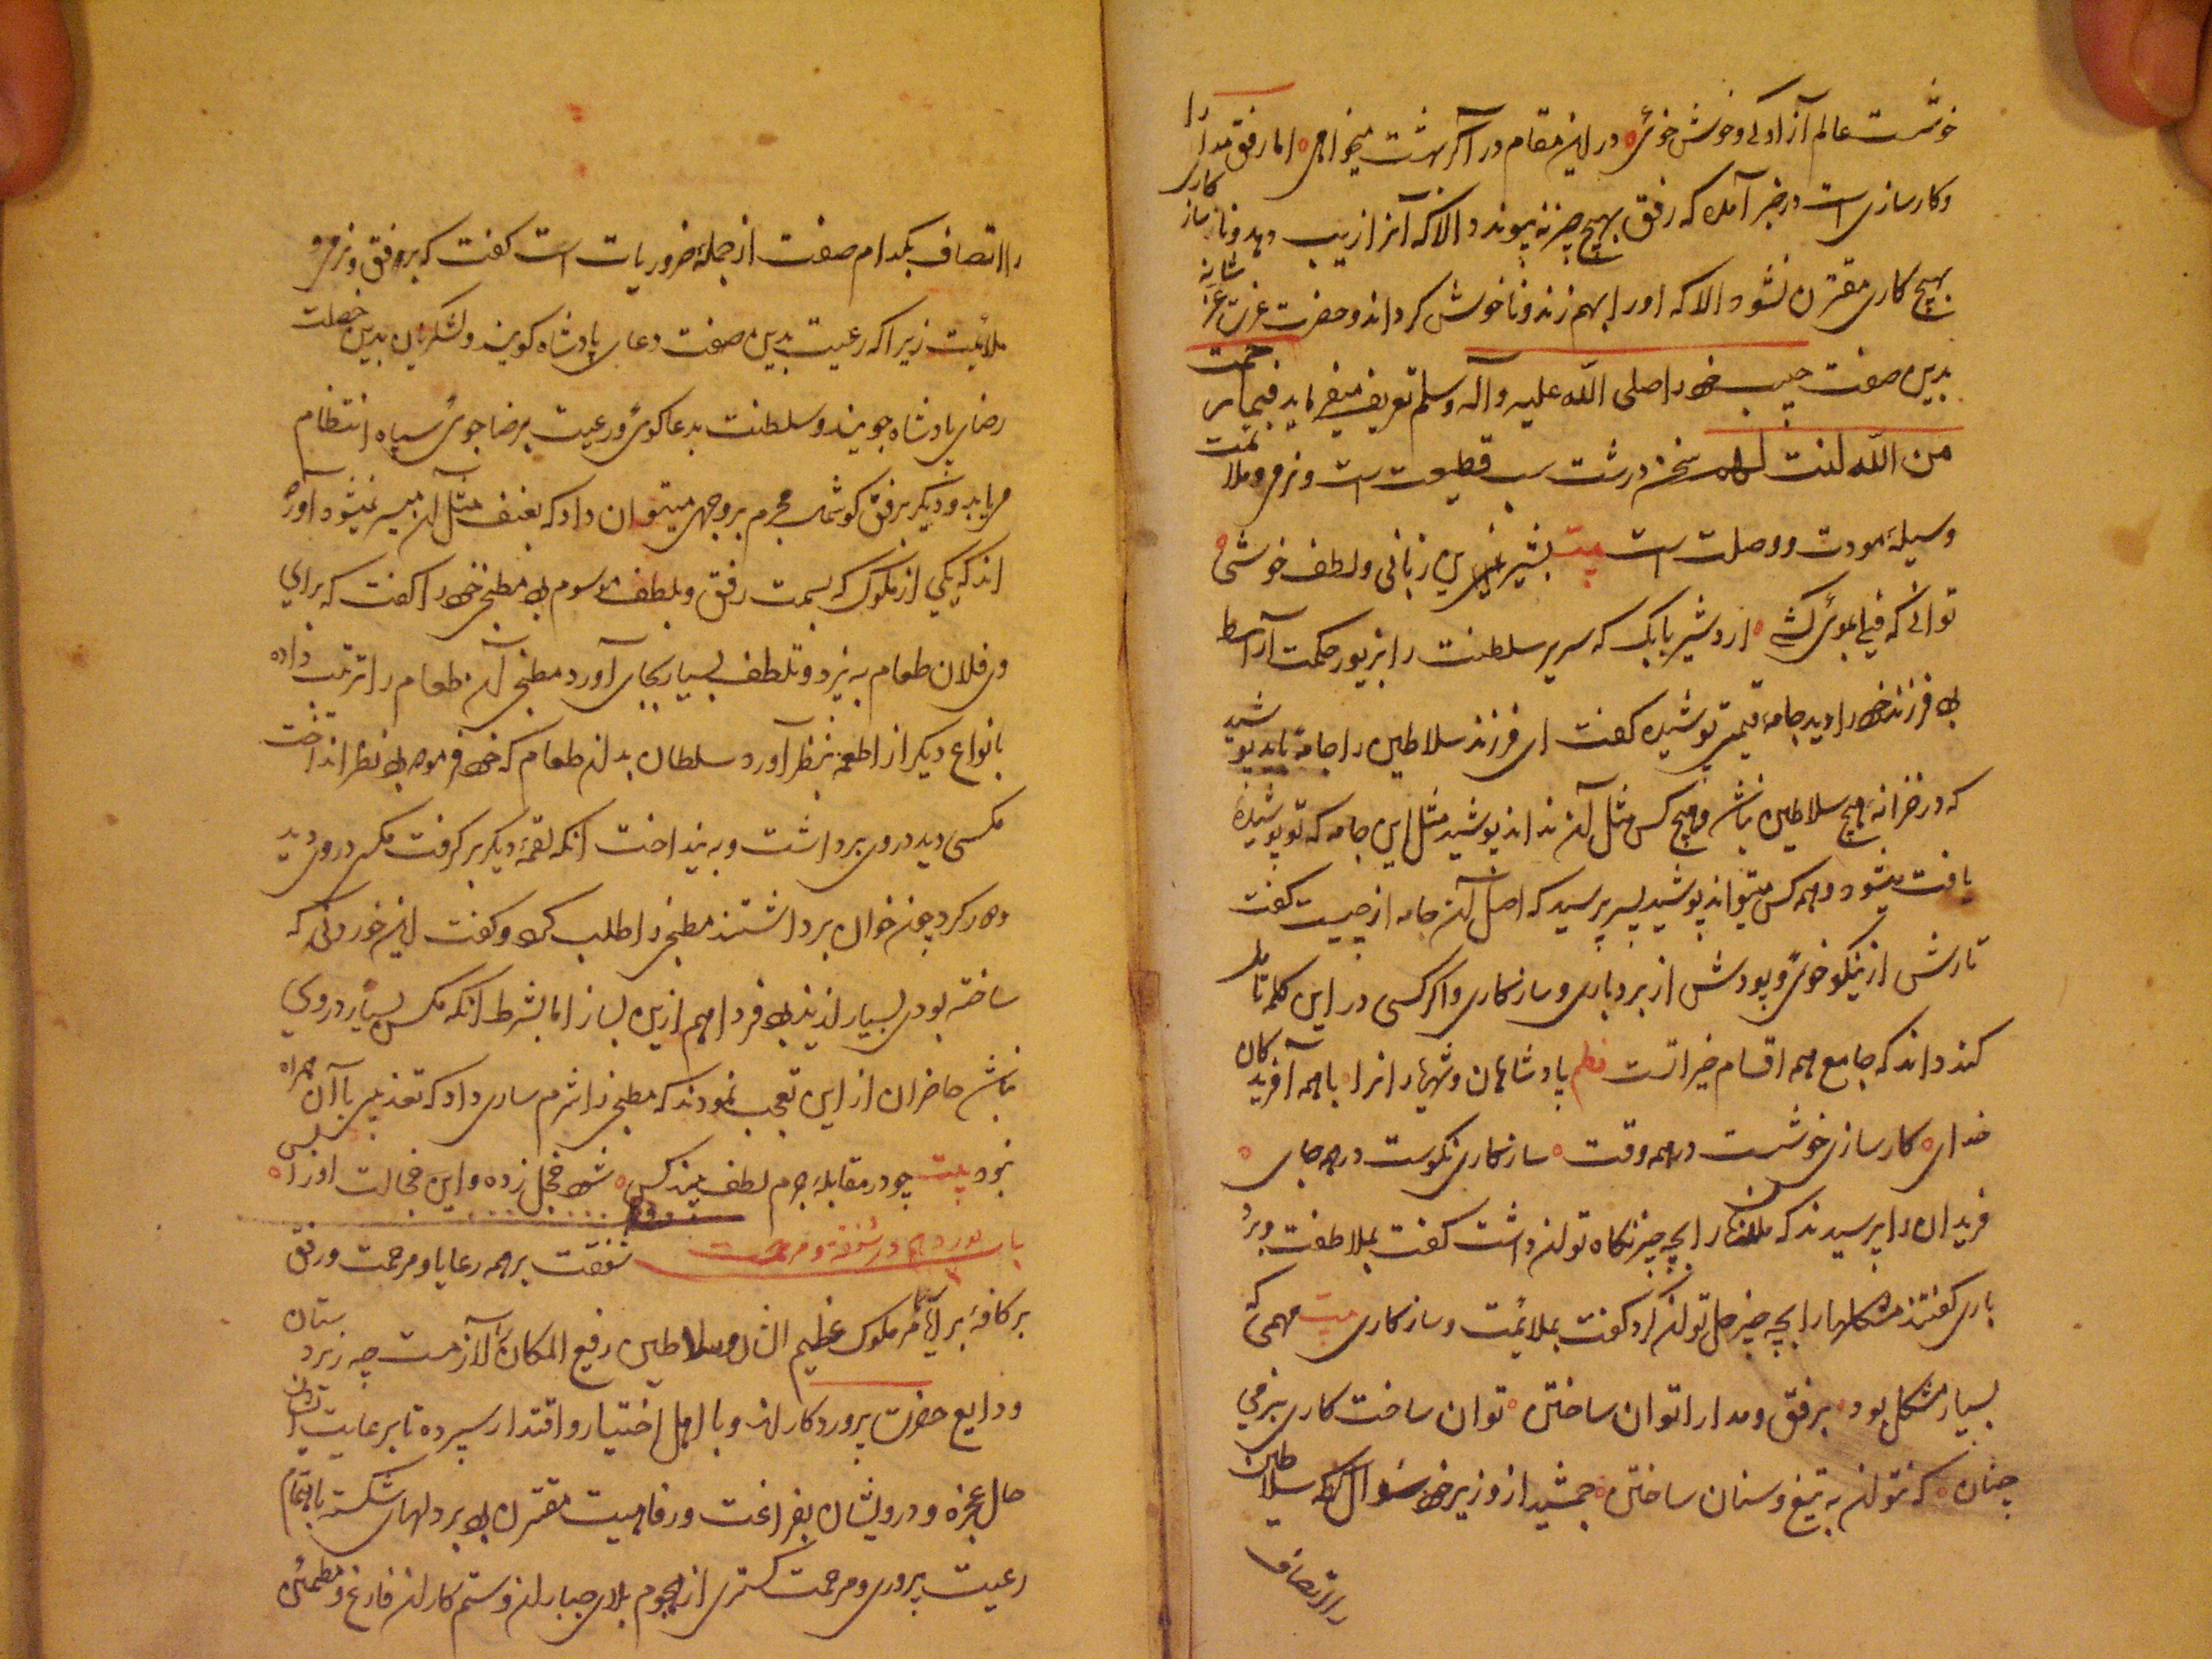 خوشست عالم آزادکی و خوش خوئی در این مقام درآ کر بهشت میخواهی اما رفق مدارا
و کارسازی است در خبر آمده که رفق بهیچ چیز نه پیوندد الا که آنرا زیب دهد و ناسازکاری
بهیچ کاری مقترن نشود الا که او را بهم زند و ناخوش کرداند و حضرت عزت عز شانه
بدین صفت حبیب خود را صلی الله علیه وآله وسلم تعریف میفرماید فبما رحمت
من الله لنت لهم سخن درشت سبب قطیعت است و نرمی و ملائمت
وسیلهٔ مودت و وصلت است بیت بشیرین زبانی و لطف خوشی
توانی که فیلی بموئی کشی اردشیر بابک که سریر سلطنت را بزیور حکمت آراسته
بود فرزند خود را دید جامهٔ قیمتی پوشیده کفت ای فرزند سلاطین را جامهٔ باید پوشید
که در خزانه هیچ سلاطین نباشد و هیچ کس مثل آن نداند پوشید مثل این جامه که تو پوشیدهٔ
یافت میشود و همه کس میتواند پوشید پسر پرسید که اصل آن جامه از چیست کفت
تارش از نیکو خوئی و پودش از بردباری و سازکاری و اکر کسی در این کلمه تامل
کند داند که جامع همه اقسام خیراتست نظم پادشاهان و شهریاران را با همه آفریدکان
خدای کارسازی خوشست در همه وقت سازکاری نکوست در همه جای
فریدان را پرسیدند که ملکها را بچه چیز نکاه توان داشت کفت بملاطفت و برد
باری کفتند مشکلها را بچه چیز حل توان کرد کفت بملائمت و سازکاری بیت مهمی که
بسیار مشکل بود برفق و مدارا توان ساختن توان ساخت کاری بنرمی
چنان که نتوان به تیغ و سنان ساختن جمشید از وزیر خود سوال کرد که سلاطین
را اتصاف
را اتصاف بکدام صفت از جملهٔ ضروریات است کفت که برفق و نرمی و
ملائمت زیرا که رعیت بدین صفت دعای پادشاه کویند و لشکریان بدین خصلت
رضای پادشاه جویند و سلطنت بدعاکوئی رعیت برضاجوئی سپاه انتظام
می یابد و دیکر برفق کوشمال مجرم بر وجهی میتوان داد که بعنف مثل آن میسر نمیشود آورده
اند که یکی از ملوک که بسمت رفق و بلطف موسوم بود مطبخی خود را کفت که برای
وی فلان طعام به پزد و تلطف بسیار بجای آورد مطبخی آن طعام را ترتیب داده
بانواع دیکر از اطعمه بنظر آورد سلطان بدان طعام که خود فرموده بود نظر انداخت
مکسی دید در وی برداشت و به ینداخت آنکه لقمهٔ دیکر بر کرفت مکسی در وی دید
دور کرد چون خوان برداشتند مطبخی را طلب کرد و کفت این خوردنی که
ساخته بودی بسیار لذیذ بود فردا هم ازین بساز اما بشرط آنکه مکس بسیار در وی
نباشد حاضران از این تعجب نمودند که مطبخی را شرم ساری داد که تعذیبی با آن همراه
نبود بیت چو در مقابلهٔ جرم لطف بیند کس شود خجل زده و این خجالت او را بس
باب نوردهم در شفقت و مرحمت شفقت بر همه رعایا و مرحمت و رفق
بر کافهٔ برایا مر ملوک عظیم الشان و سلاطین رفیع المکان را لازمست چه زیردستان
ودایع حضرت پروردکارند و با اهل اختیار و اقتدار سپرده تا برعایت ایشان
حال عجزه و درویشان بفراغت و رفاهیت مقترن بود بر دلهای شکسته باهتمام
رعیت پروری و مرحمت کستری از هجوم بلای جباران و ستم کاران فارغ و مطمئن